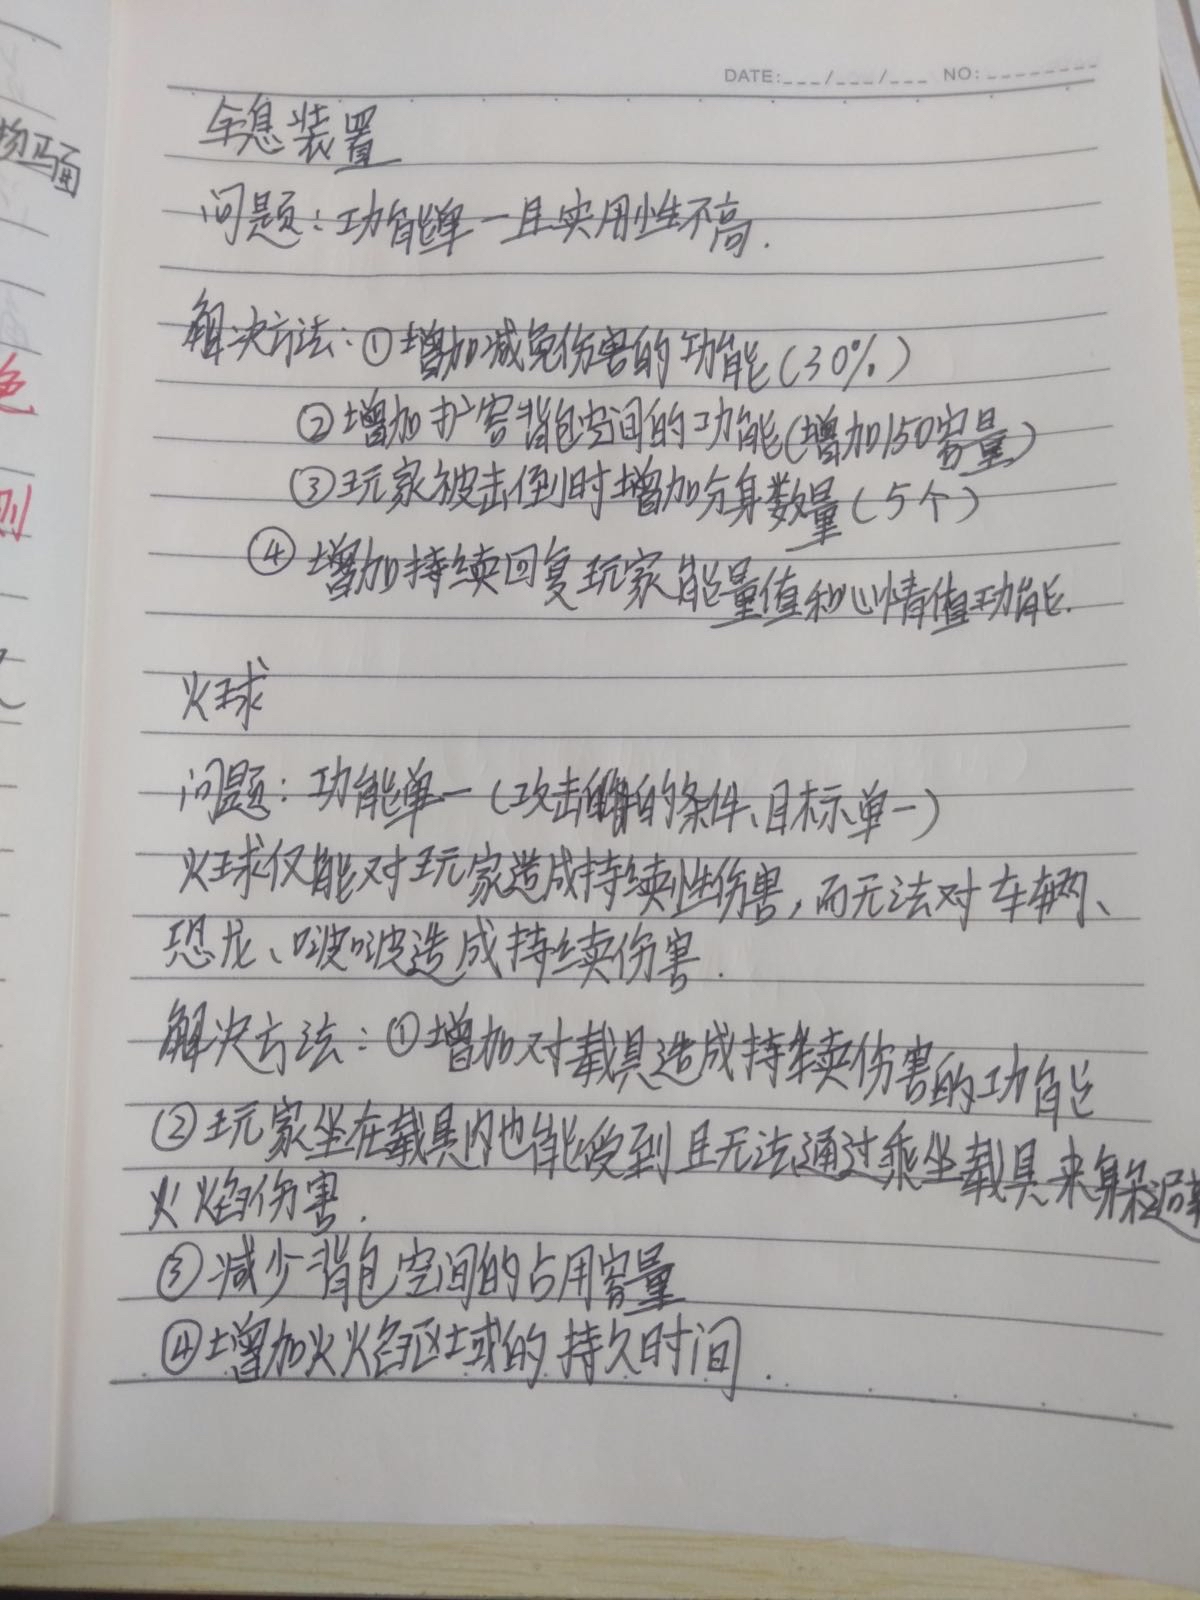 DATE:___/___/___ NO:________
全息装置
问题：功能单一且实用性不高.
解决方法：①增加减免伤害的功能(30%)
②增加扩容背包空间的功能(增加150容量)
③玩家被击倒时增加分身数量(5个)
④增加持续回复玩家能量值和心情值功能.
火球
问题：功能单一(攻击的条件、目标单一)
火球仅能对玩家造成持续性伤害,而无法对车辆、
恐龙、啵啵造成持续伤害.
解决方法：①增加对载具造成持续伤害的功能
②玩家坐在载具内也能受到且无法通过乘坐载具来躲避
火焰伤害.
③减少背包空间的占用容量
④增加火焰区域的持久时间.